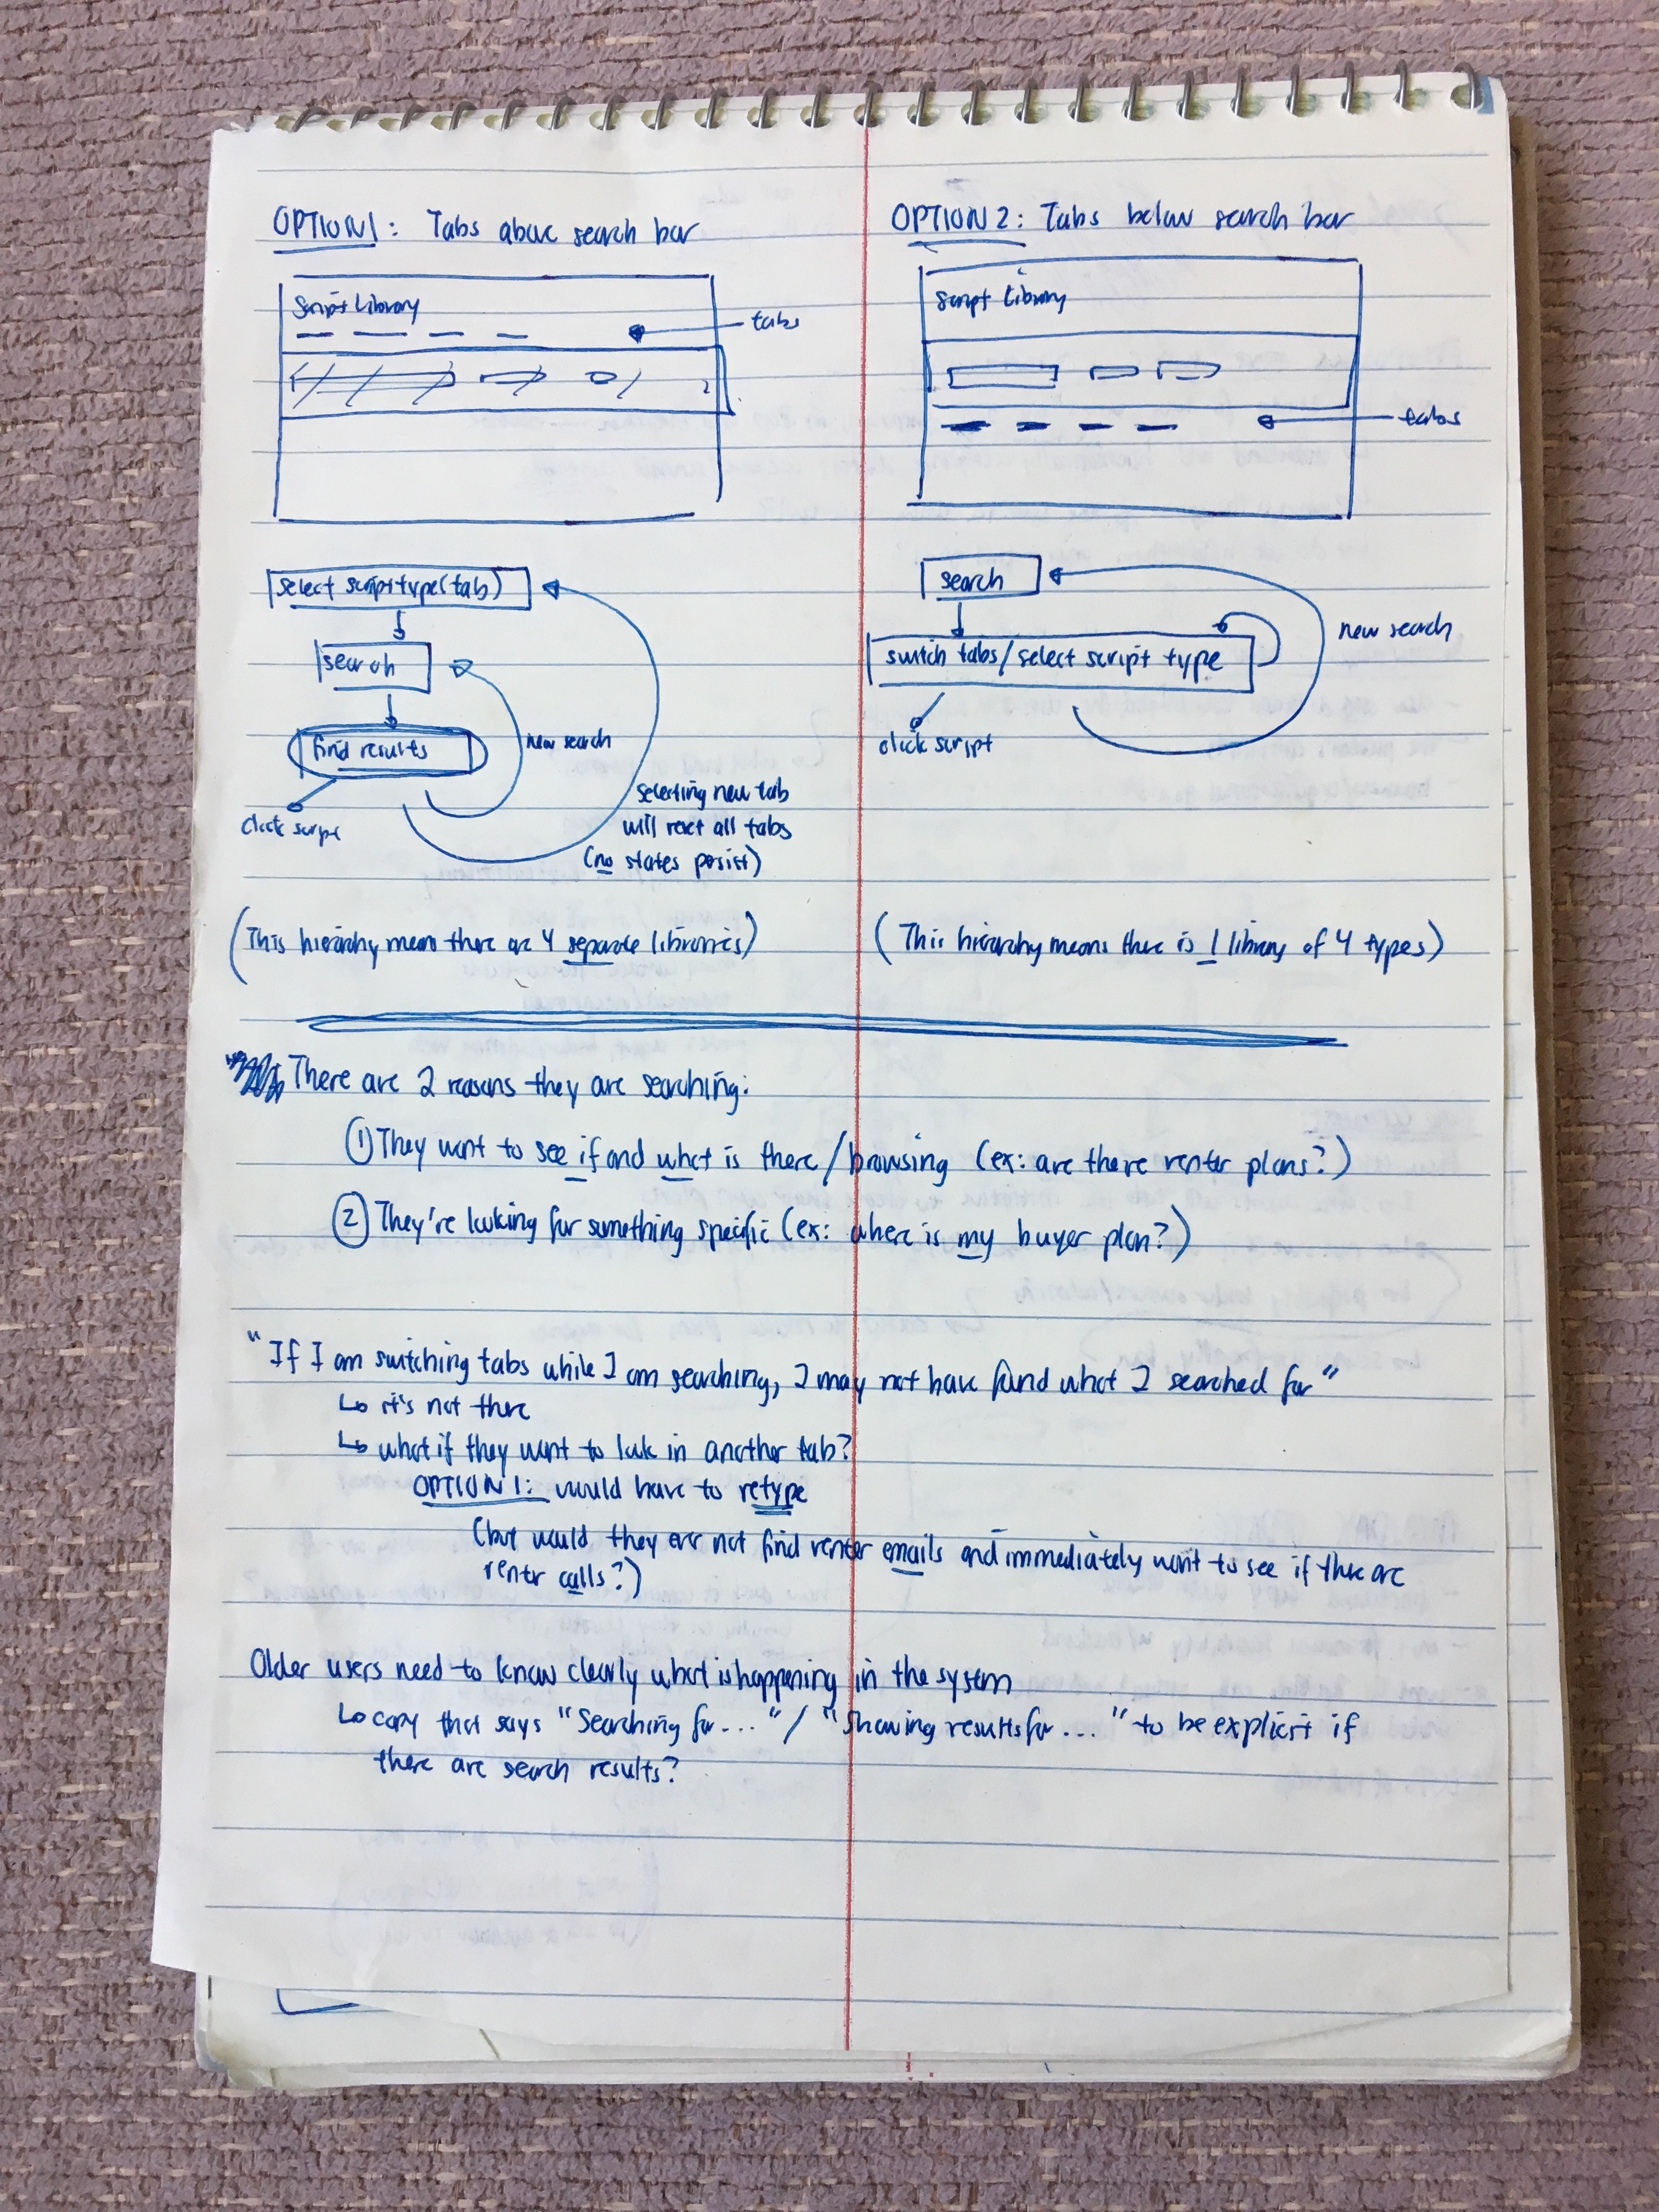 OPTION 1: Tabs above search bar
Script Library
tabs
select script type (tab)
search
find results
new search
click script
selecting new tab
will reset all tabs
(no states persist)
(This hierarchy means there are 4 separate libraries)
OPTION 2: Tabs below search bar
Script Library
tabs
search
switch tabs/select script type
new search
click script
(This hierarchy means there is 1 library of 4 types)
There are 2 reasons they are searching:
① They want to see if and what is there/browsing (ex: are there renter plans?)
② They're looking for something specific (ex: where is my buyer plan?)
"If I am switching tabs while I am searching, I may not have found what I searched for"
↳ it's not there
↳ what if they want to look in another tab?
OPTION 1: would have to retype
(but would they ever not find renter emails and immediately want to see if there are
renter calls?)
Older users need to know clearly what is happening in the system
↳ copy that says "Searching for..." / "Showing results for..." to be explicit if
there are search results?